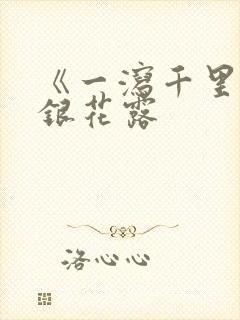 《一瀉千里
銀花露
洛心心